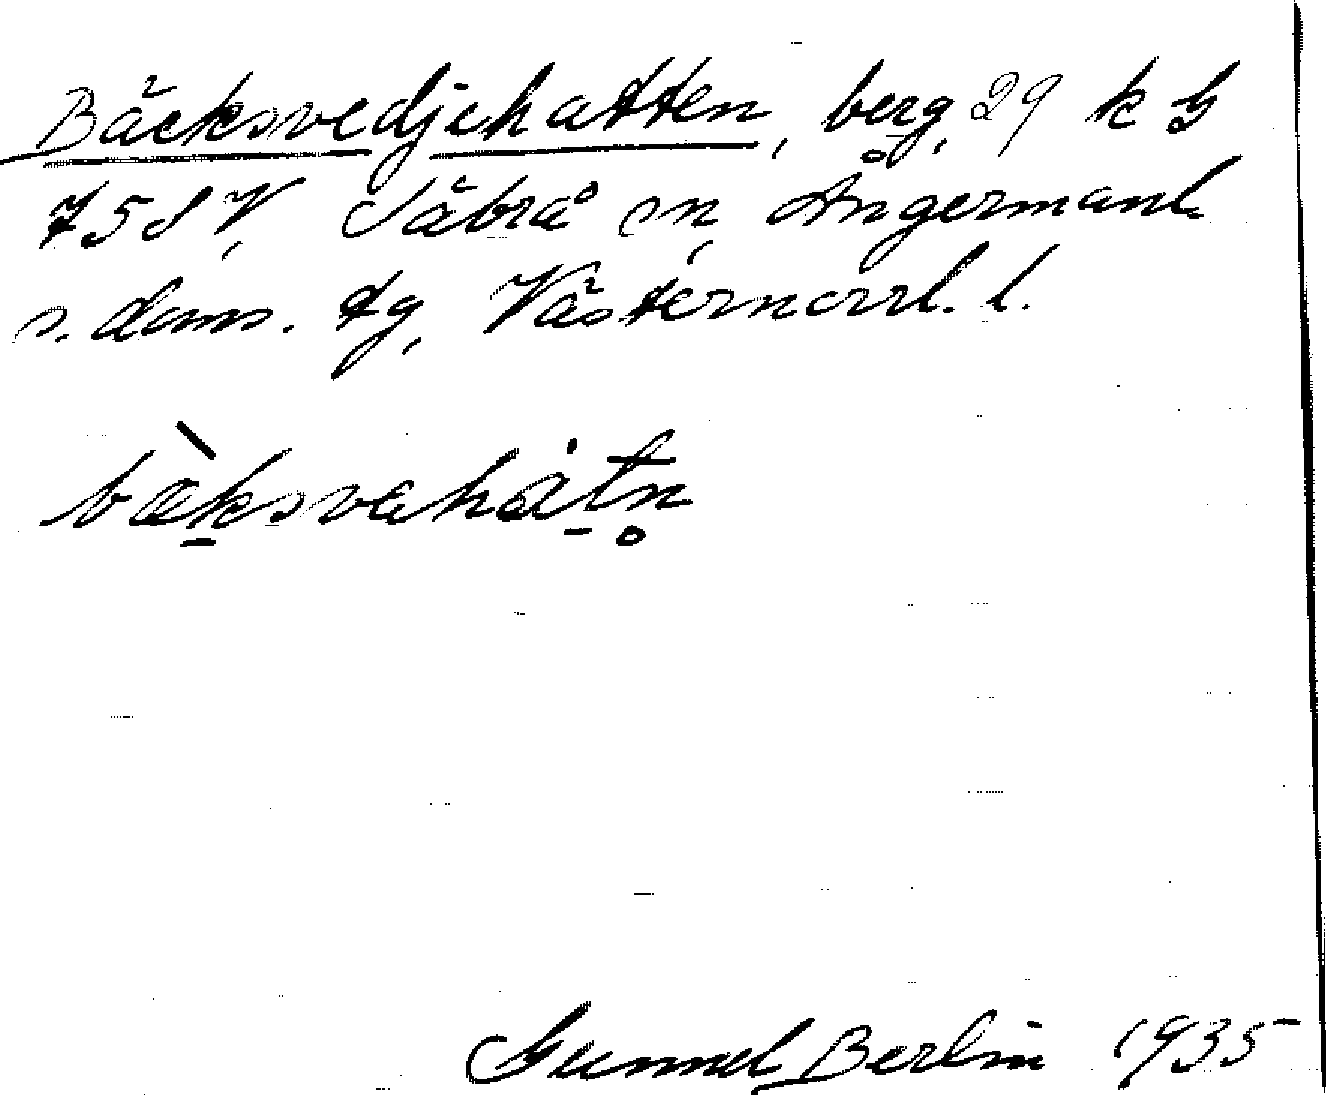 Bäcksvedjehatten, berg, 29 k G
75 SV, Säbrå sn, Ångermanl.
s. doms. tg, Västernorrl. l.
bæksvahatn
Gunnel Berlin 1935